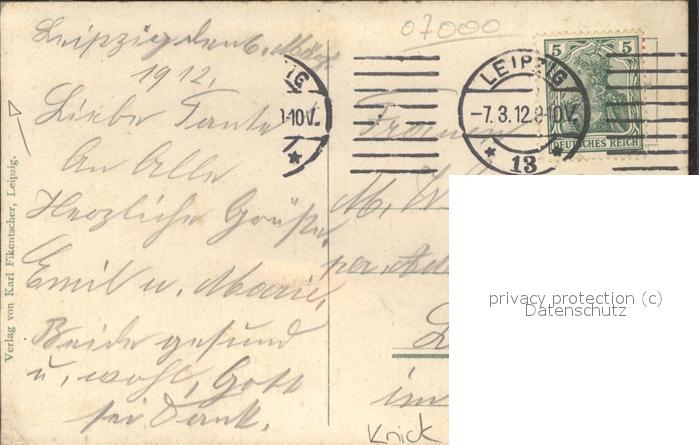 07000
Leipzig den 6. März
1912.
Liebe Tante
An Alle
Herzliche Grüße,
Emil u. Marie,
Beide gesund
u. wohl, Gott
sei Dank.
Verlag von Karl Fikentscher, Leipzig.
IG
-10V.
LEIPZIG
-7.3.12.9-10V.
13
5 5
DEUTSCHES REICH
M. W
per. 
L
im
Knick
privacy protection (c)
Datenschutz